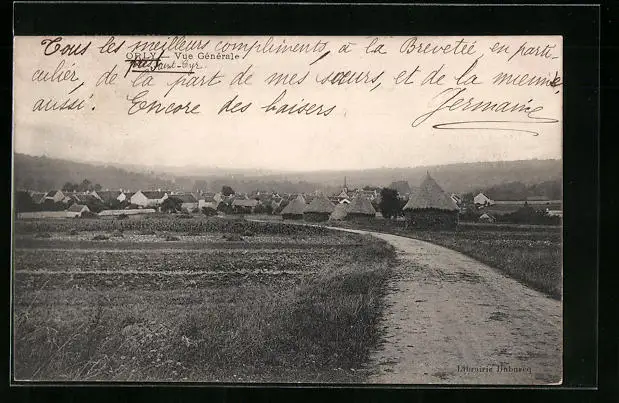 Tous les meilleurs compliments, à la Brevetée en parti-
ORLY - Vue Générale
culier, de la part de mes sœurs, et de la mienne
près Saint-Cyr.
aussi. Encore des baisers Germaine
Librairie Dubarcq